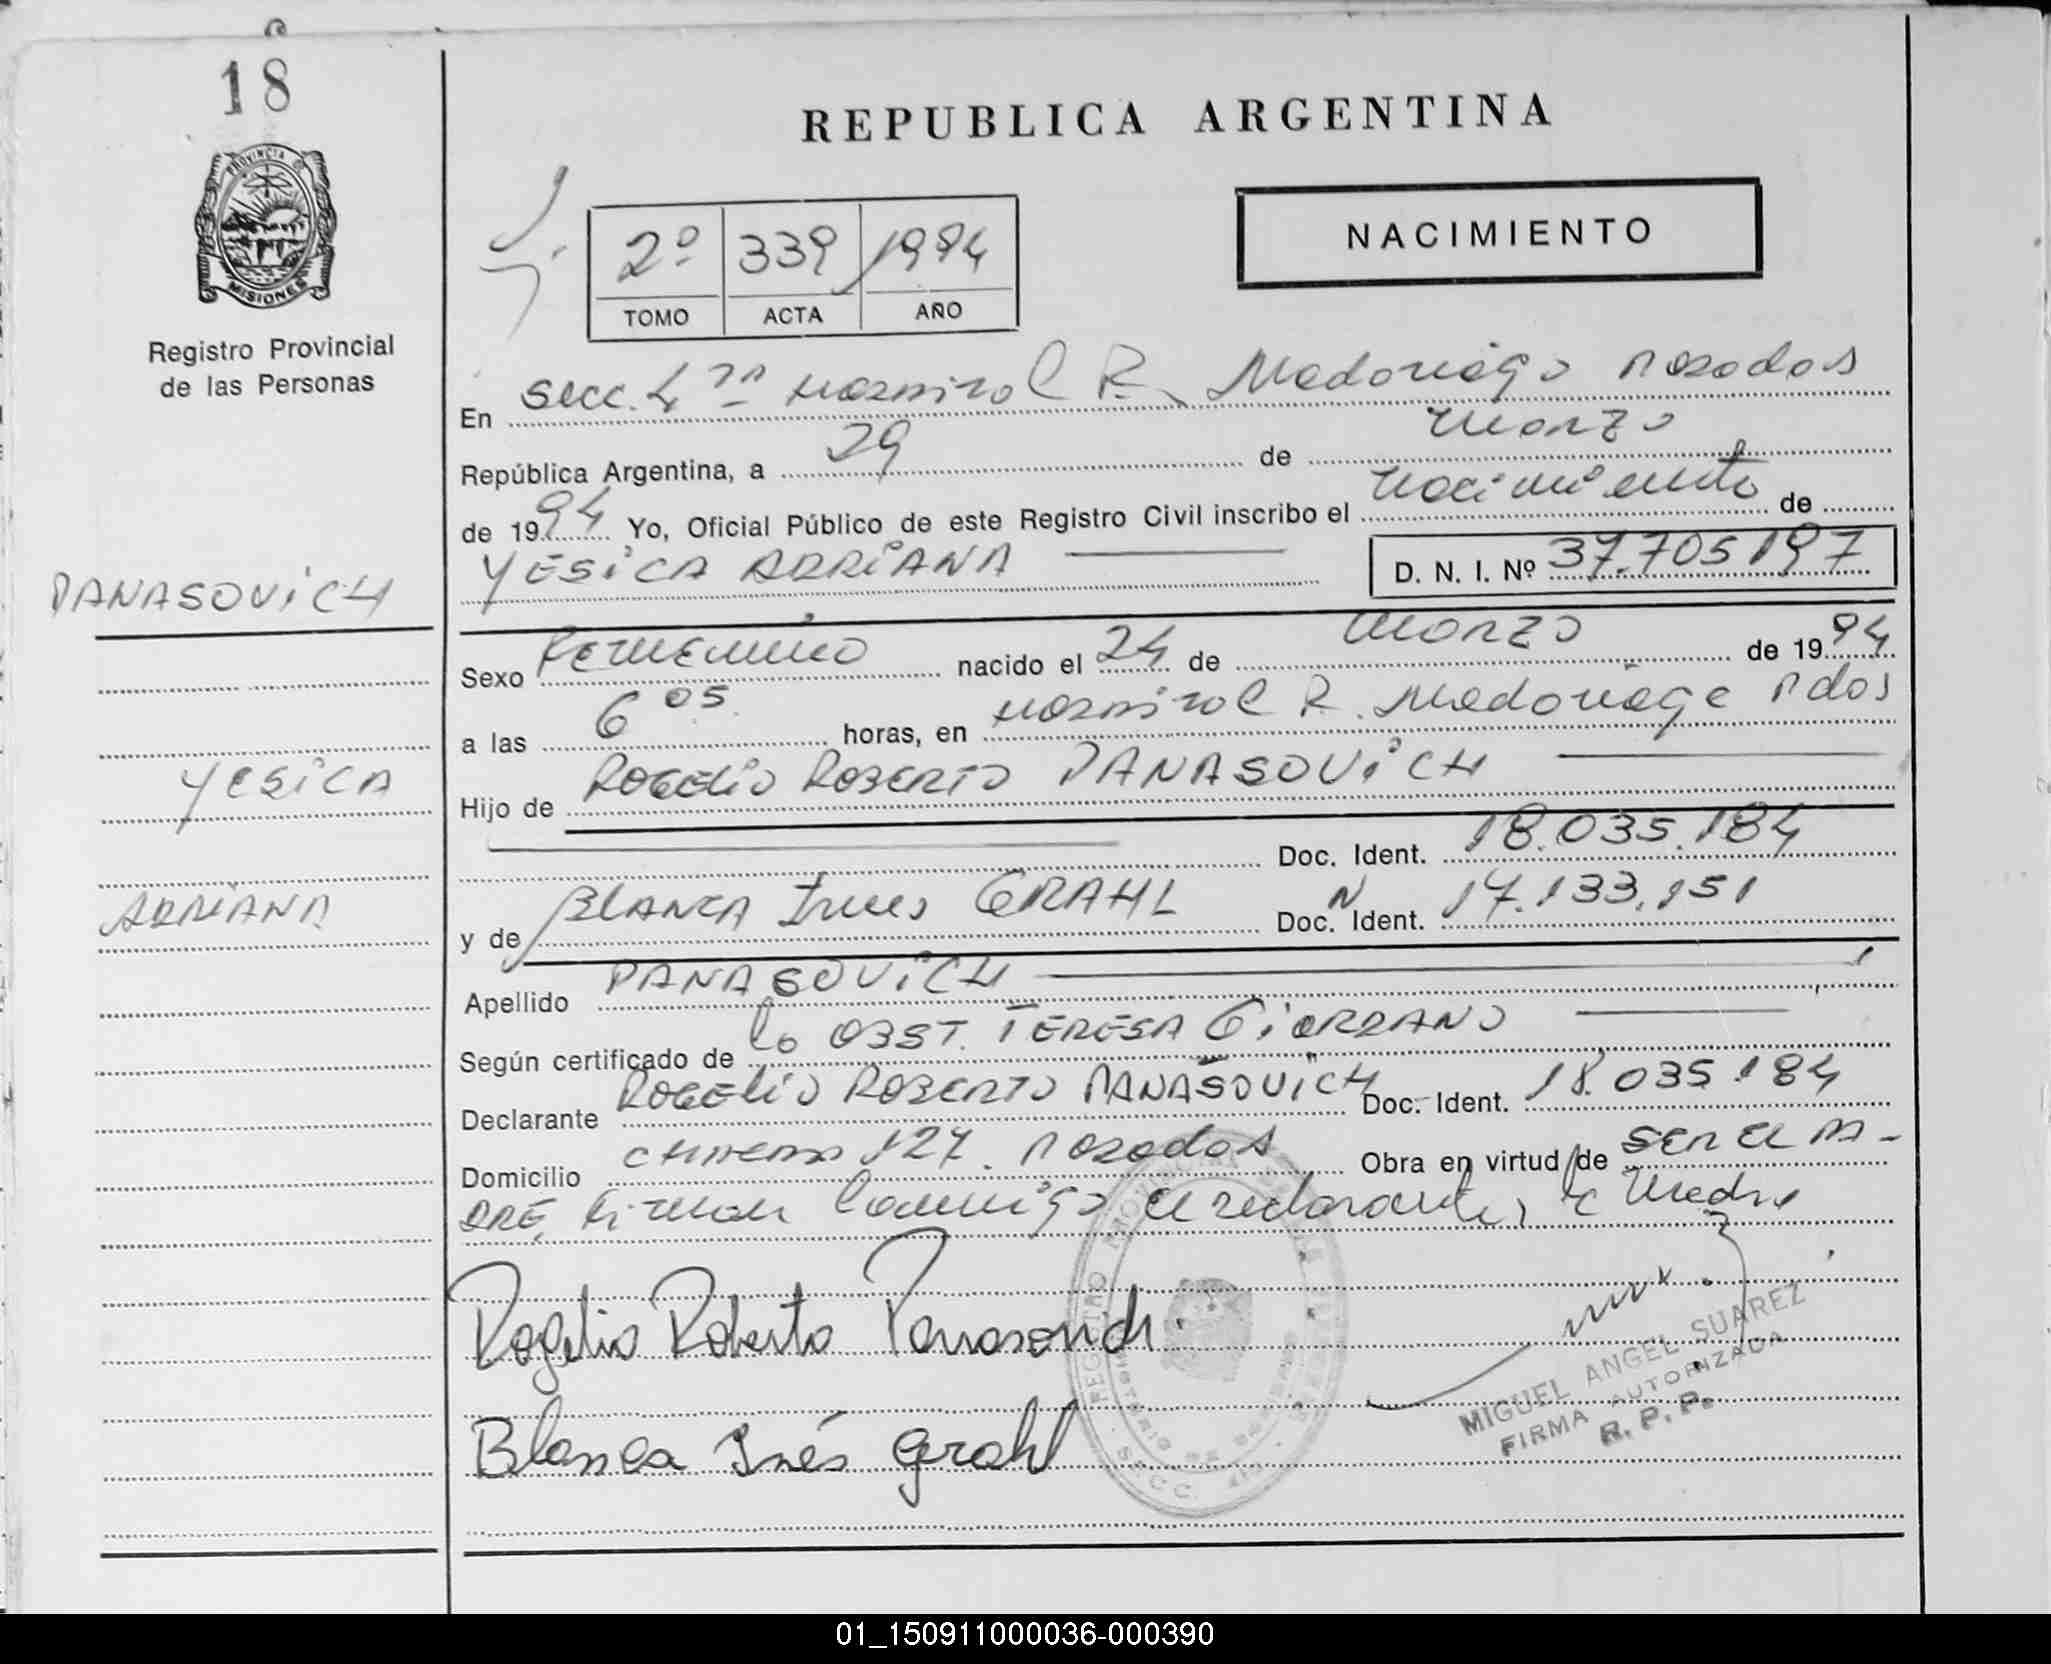 18
PROVINCIA DE
MISIONES
Registro Provincial
de las Personas
REPUBLICA ARGENTINA
NACIMIENTO
2º 339 1994
TOMO ACTA AÑO
En Secc. 4ta Hospital R. Madariaga Posadas
República Argentina, a 29 de Marzo
de 1994 Yo, Oficial Público de este Registro Civil inscribo el Nacimiento de
YESICA ADRIANA D. N. I. Nº 37.705.197
PANASOVICH
Sexo Femenino nacido el 24 de Marzo de 1994
a las 6 05 horas, en Hospital R. Madariaga Pdas
YESICA
Hijo de ROGELIO ROBERTO PANASOVICH
Doc. Ident. 18.035.184
ADRIANA
y de BLANCA Ines GRAHL Doc. Ident. 17.133.151
Apellido PANASOVICH
Según certificado de la OBST. TERESA GIORDANO
Declarante ROGELIO ROBERTO PANASOVICH Doc. Ident. 18.035.184
Domicilio 127. Posadas Obra en virtud de SER EL PA-
DRE, Firman Conmigo el declarante, la Madre
Rogelio Roberto Panasovich.
Blanca Inés Grahl
MIGUEL ANGEL SUAREZ
FIRMA AUTORIZADA
R. P. P.
01_150911000036-000390